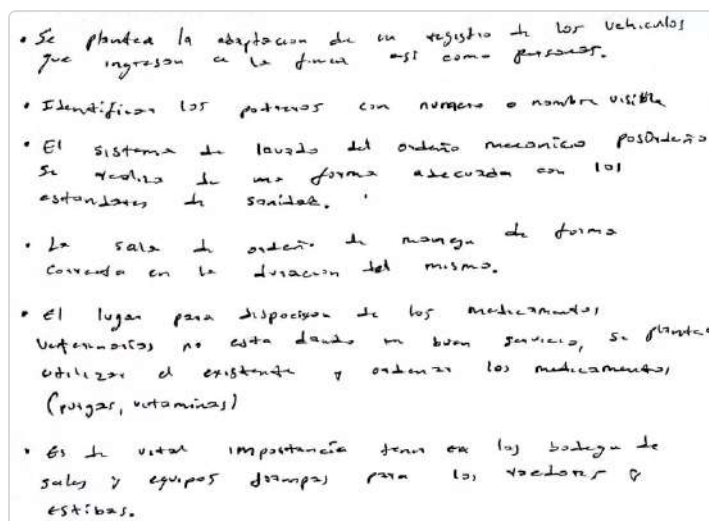 • Se plantea la adaptacion de un registro de los vehiculos
que ingresan a la finca así como personas.
• Identificar los potreros con numero o nombre visible
• El sistema de lavado del ordeño mecanico posOrdeño
se realiza de una forma adecuada con los
estandares de sanidad.
• La sala de ordeño se maneja de forma
correcta en la duracion del mismo.
• El lugar para disposicion de los medicamentos
veterinarios no esta dando un buen servicio, se plantea
utilizar el existente y ordenar los medicamentos
(purgas, vitaminas)
• Es de vital importancia tener en las bodega de
sales y equipos trampas para los roedores y
estibas.